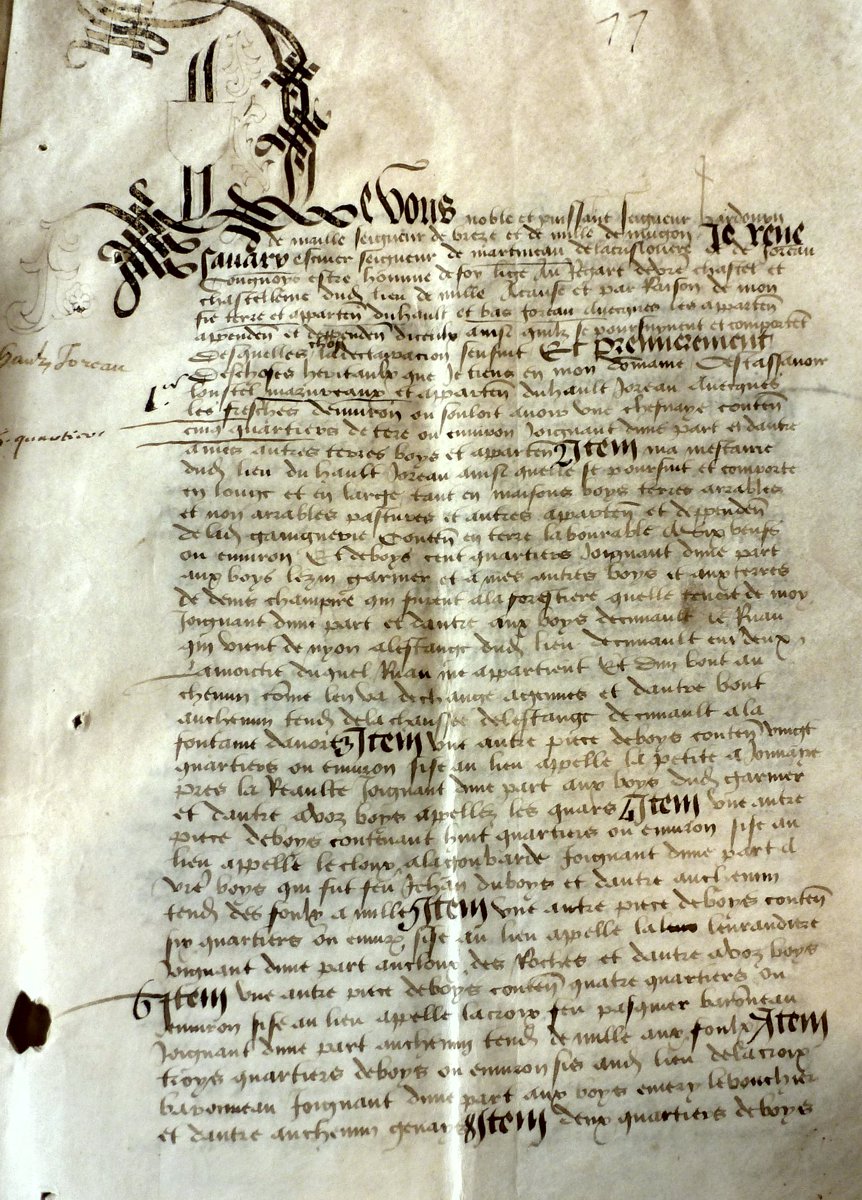 11
De vous noble et puissant seigneur hardouyn
de maille seigneur de breze et de mille de mugon Je rene
Savary escuier seigneur de martineau delacrislouiere et de Joreau
Congnoys estre homme de foy lige au regart de vre chastel et
chastellenie dud lieu de mille Acause et par Raison de mon
fie terre et apparten du hault et bas Joreau Avecques les apparten
appenden et deppenden diceulx ainsi quilz se poursuyvent et comportent
Desquelles choses la declaracion sensuit Et Premierement
Des choses heritaulx que Je tiens en mon domaine Cestassavoir
Haulx Joreau
1er
loustel mazureaux et apparten du hault Joreau Avecques
les fresches denviron ou souloit avoir une chesnaye conten
5. quartiers
cinq quartiers de tere ou environ Joignant dune part et dautre
a mes autres terres boys et apparten 2 Item ma mestairie
dud lieu du hault Joreau ainsi quelle se poursuit et comporte
en long et en large tant en maisons boys terres arrables
et non arrables pastures et autres apparten et deppenden
de lad gaignerie Conten en terre labourable A six beufs
ou environ Et de boys cent quartiers Joignant dune part
aux boys lezin garnier et a mes autres boys et aux terres
de denis champire qui furent a la forestiere quelle tenoit de moy
Joignant dune part et dautre aux boys decunault le Ruau
qui vient de nyon alestange dud lieu decunault entredeux
Lamoictie duquel Ruau me appartient Et dun bout au
chemin come len va de change agennes et dautre bout
au chemin tend de la chaussee delestange decunault a la
fontaine davort 3 Item une autre piece de boys conten vingt
quartiers ou environ sise au lieu appelle la petite
pres la Reaulte Joignant dune part aux boys dud garnier
et dautre a voz boys appellez les quars 4 Item une autre
piece de boys contenant huit quartiers ou environ sise au
lieu appelle le cloux alagoubarde Joignant dune part a
vre boys qui fut feu Jehan duboys et dautre au chemin
tend des foulx a mille 5 Item une autre piece de boys conten
six quartiers ou environ sise au lieu appelle la leurandiere
Joignant dune part au cloux des Roches et dautre a voz boys
6 Item une autre piece de boys conten quatre quartiers ou
environ sise au lieu apelle la croix feu pasquier baronneau
Joignant dune part au chemin tend de mille aux foulx 7 Item
troys quartiers de boys ou environ sis aud lieu de la croix
baronneau Joignant dune part aux boys emery lebouchier
et dautre au chemin genays 8 Item deux quartiers de boys